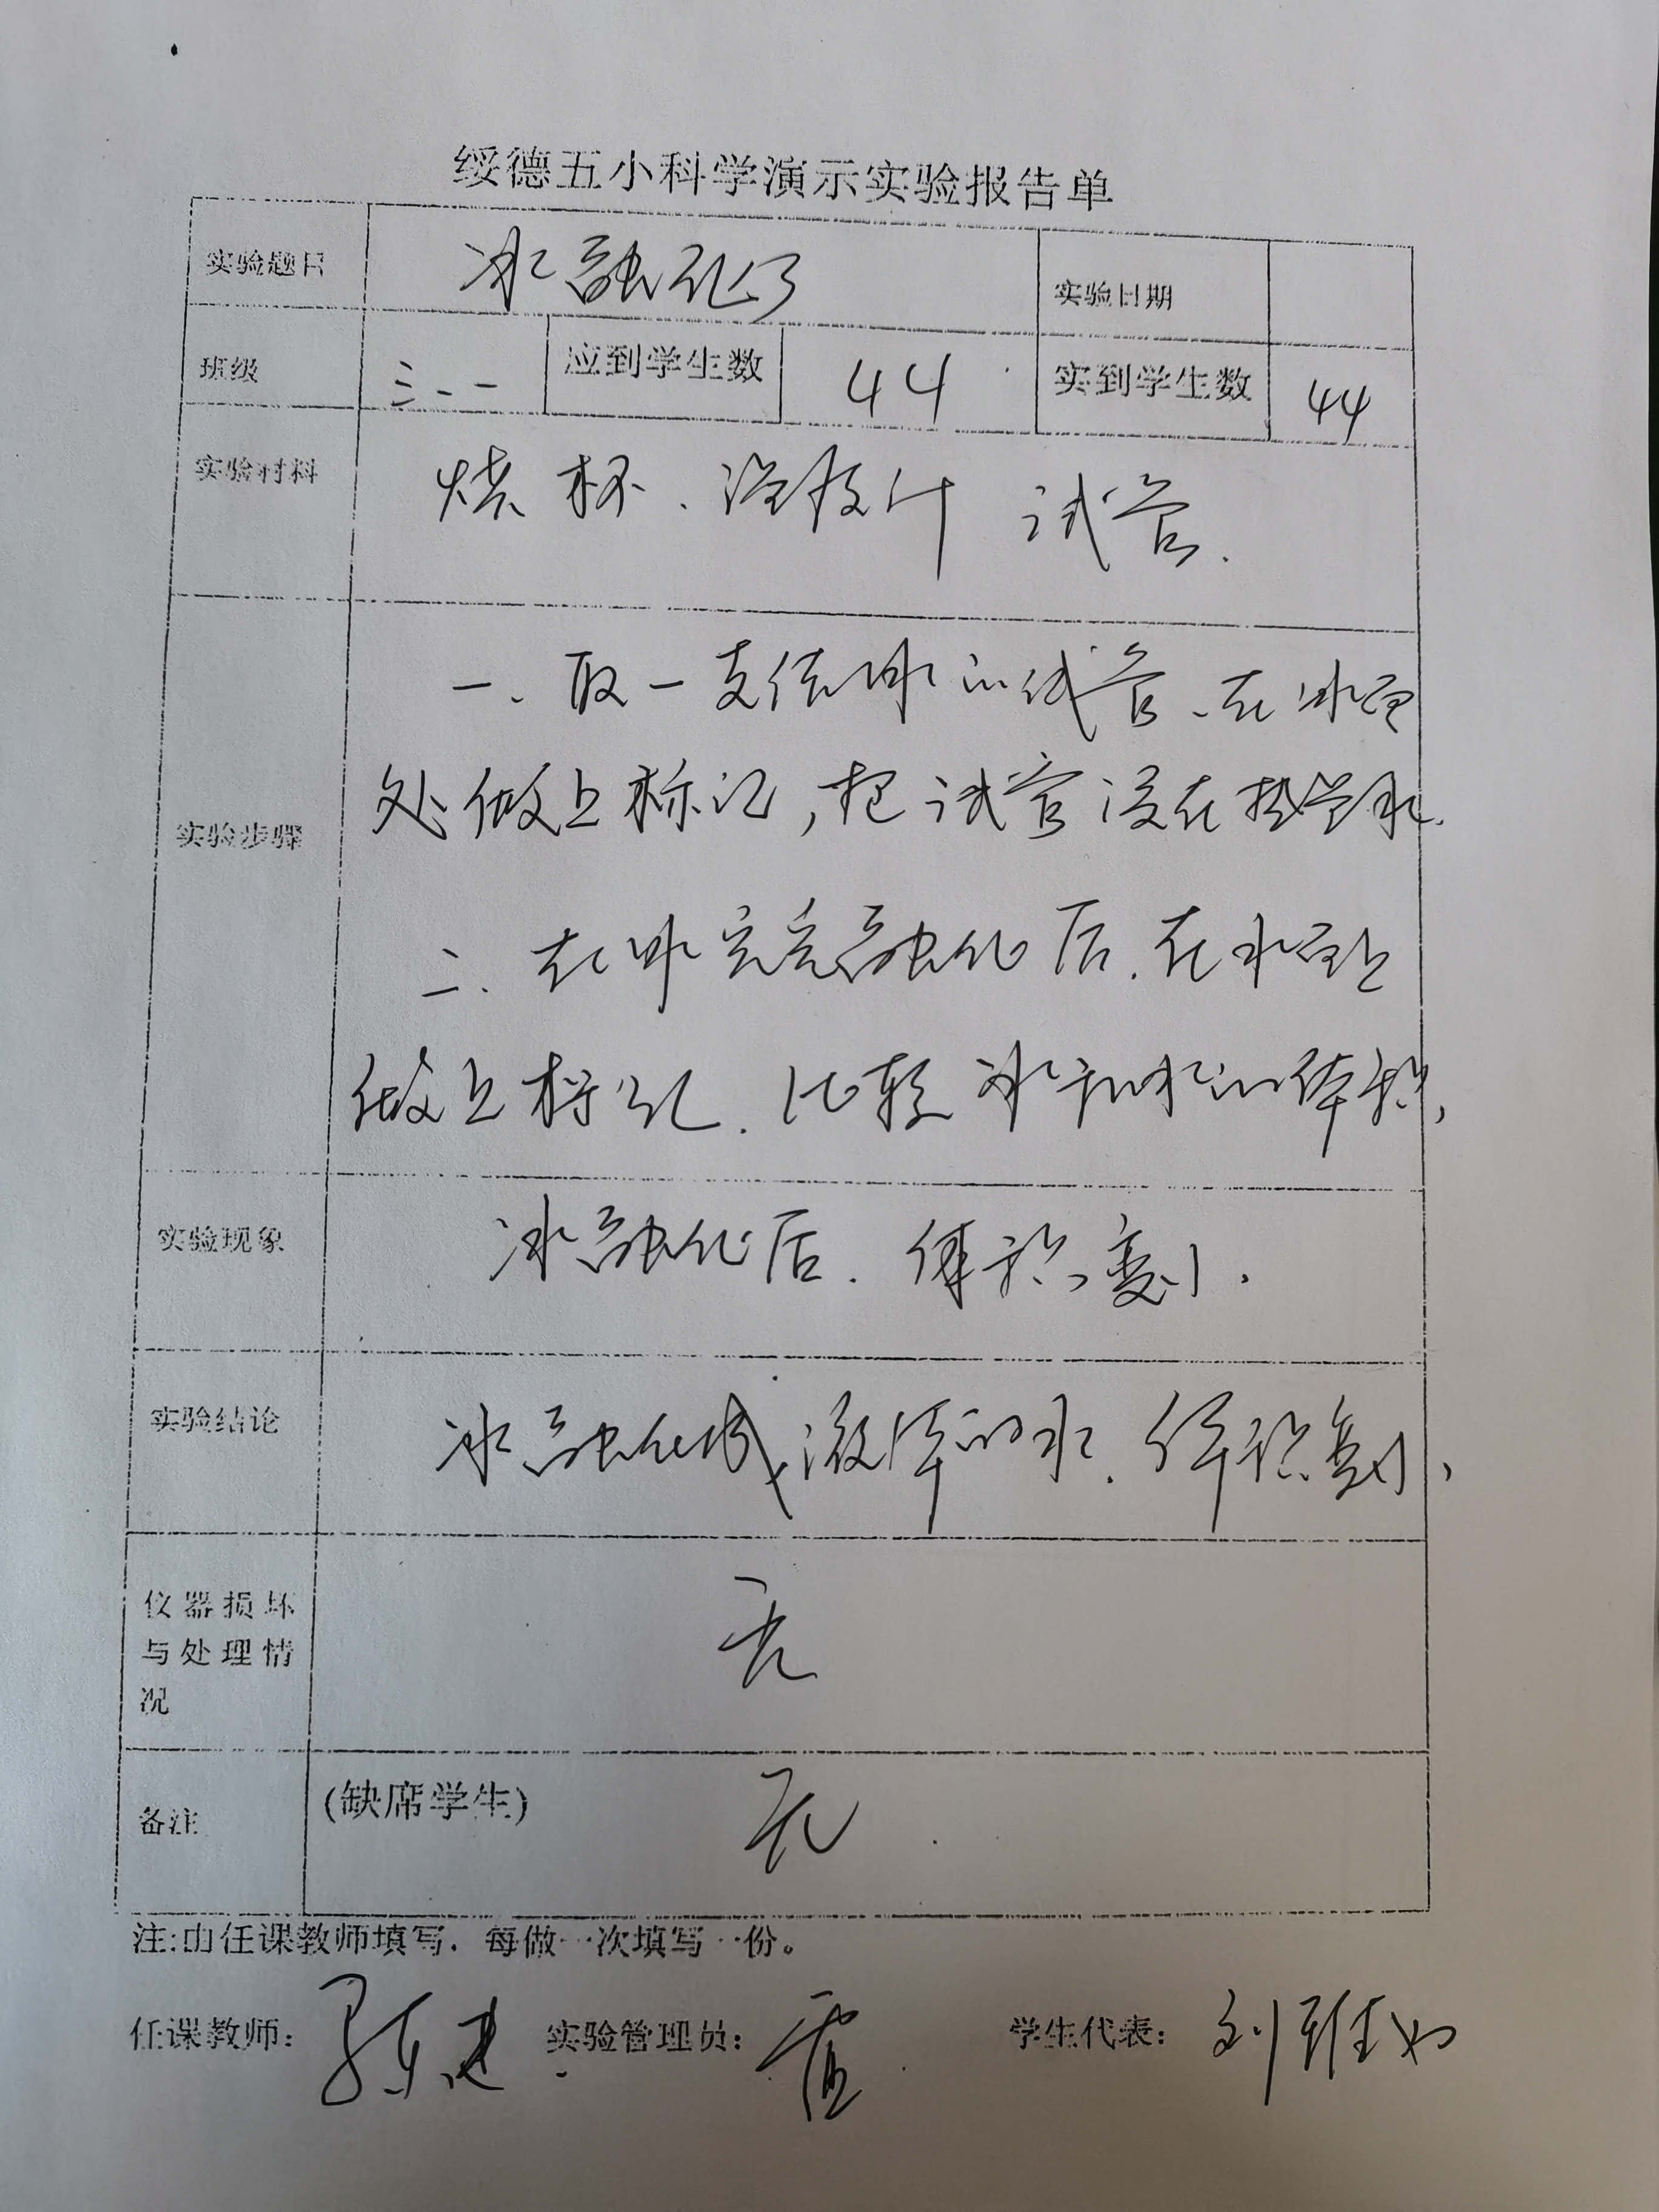 绥德五小科学演示实验报告单
实验题目 冰融化了 实验日期
班级 三、一 应到学生数 44 实到学生数 44
实验材料 烧杯、温度计 试管.
实验步骤
一、取一支结冰的试管、在冰面
处做上标记,把试管浸在热水.
二、在冰完全融化后.在水面上
做上标记.比较冰和水的体积,
实验现象 冰融化后.体积变小.
实验结论 冰融化成液体的水.体积变小、
仪器损坏
与处理情
况
无
备注 (缺席学生) 无
注:由任课教师填写,每做一次填写一份。
任课教师: 实验管理员: 霍 学生代表: 刘雅如